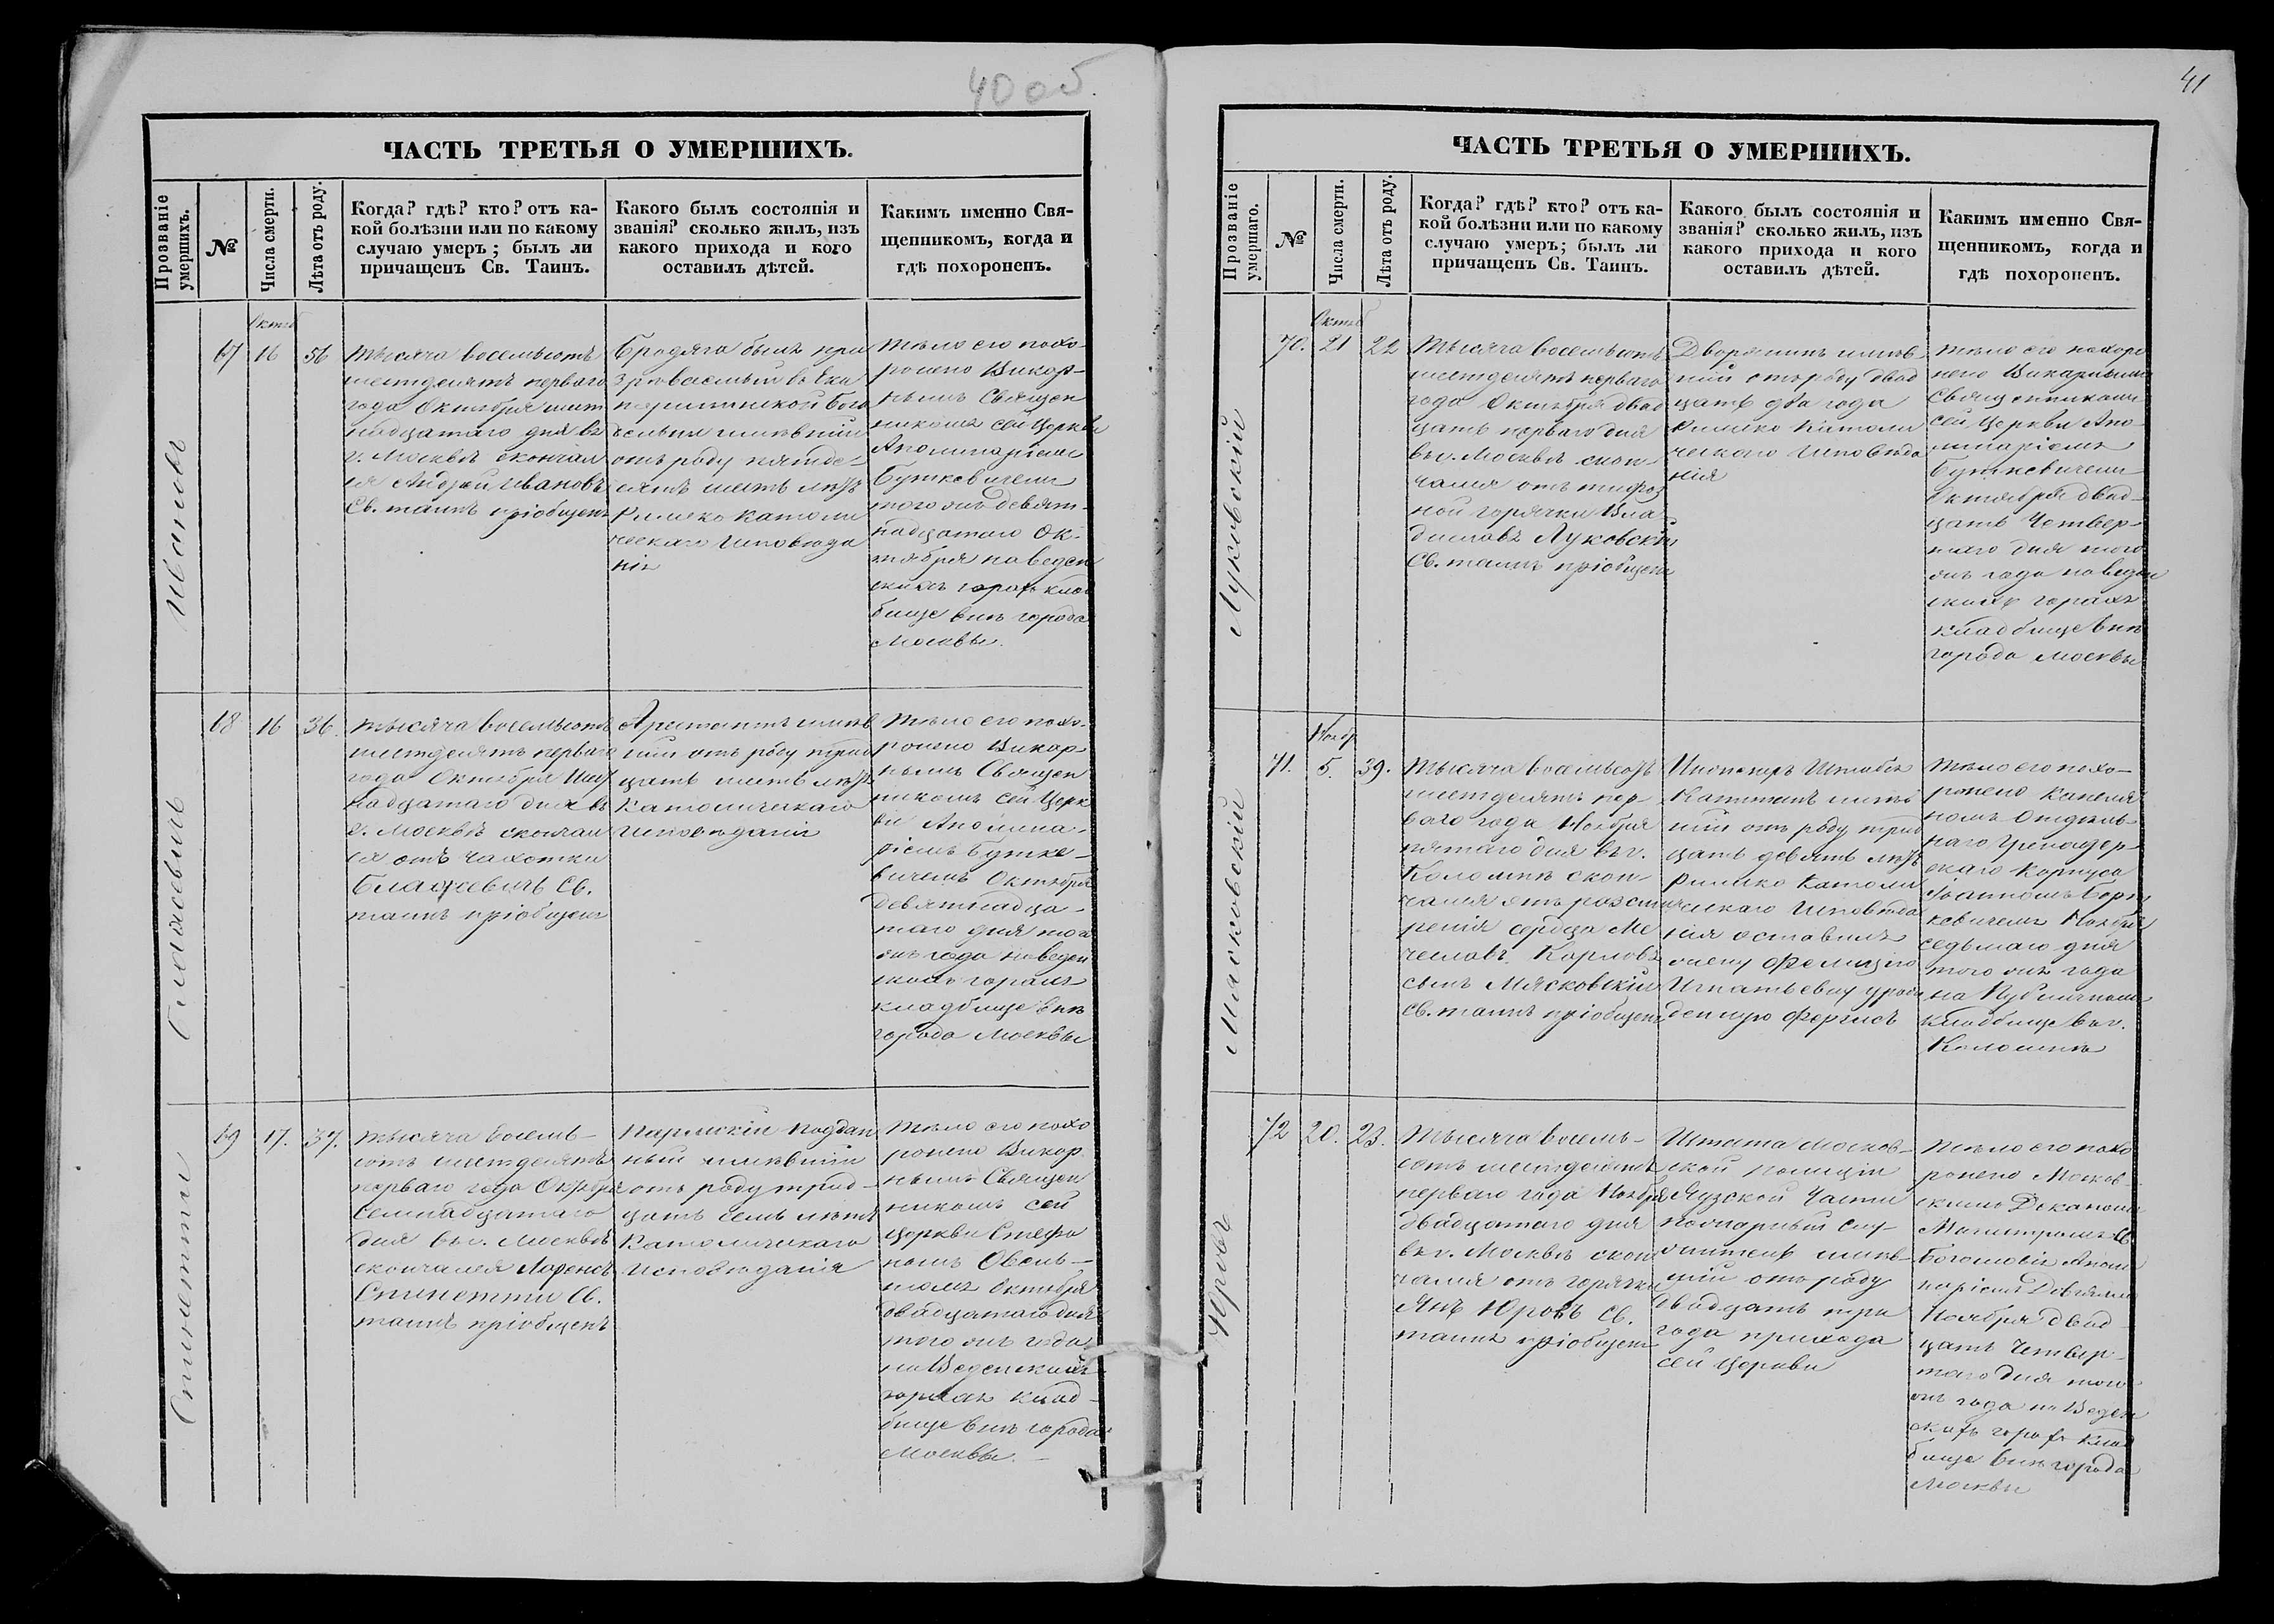 40 об.
ЧАСТЬ ТРЕТЬЯ О УМЕРШИХЪ.
Прозваніе умершихъ.
№
Числа смерти.
Лѣта отъ роду.
Когда? гдѣ? кто? отъ ка-
кой болѣзни или по какому
случаю умеръ; былъ ли
причащенъ Св. Таинъ.
Какого былъ состоянія и
званія? сколько жилъ, изъ
какого прихода и кого
оставилъ дѣтей.
Какимъ именно Свя-
щенникомъ, когда и
гдѣ похороненъ.
Ивановъ
67
Октяб
16
56
Тысяча восемьсотъ
шестдесятъ перваго
года Октября шест
надцатаго дня въ
г. Москвѣ сконча
ся Андрей Ивановъ
Св. таинъ пріобщенъ
Бродяга былъ при
зрѣваемый во Ека
терининской бога
дѣльни имѣвший
отъ роду пятде-
сятъ шесть лѣтъ
Римско Католи
ческаго Исповѣда
нія
Тѣло его похо-
ронено Викар-
нымъ Священ
никомъ сей Церкви
Аполинаріемъ
Буткевичемъ
того жъ девят-
надцатаго Ок-
тября на Веден
скихъ горахъ клад
бище внѣ города
Москвы.
Блажевичъ
68
16
36.
Тысяча восемьсотъ
шестдесятъ перваго
года Октября Шест
надцатаго дня въ
г. Москвѣ скончал
ся отъ чахотки
Блажевичъ Св.
таинъ пріобщенъ
Арестантъ имѣв
ший отъ роду трид
цать шесть лѣтъ
Католическаго
Исповѣданія
Тѣло его похо-
ронено Викар
нымъ Священ
никомъ сей Церк
ви Аполина-
ріемъ Бутке-
вичемъ Октября
девятнадца-
таго дня того
жъ года на Веден
скихъ горахъ
кладбище внѣ
города Москвы
Спинетти
69
17.
37.
Тысяча восемь-
сотъ шестдесятъ
перваго года Октября
Семнадцатаго
дня въ г. Москвѣ
скончался Лоренсъ
Спинетти Св.
таинъ пріобщенъ
Пармскій Поддан
ный имѣвший
отъ роду трид-
цать семь лѣтъ
Католическаго
Исповѣданія
Тѣло его похо
ронено Викар
нымъ Священ
никомъ сей
Церкви Стефа
номъ
Октября
двадцатаго дня
того жъ года
на Веденскихъ
горахъ клад-
бище внѣ города
Москвы.
41
ЧАСТЬ ТРЕТЬЯ О УМЕРШИХЪ.
Прозваніе умершаго.
№
Числа смерти.
Лѣта отъ роду.
Когда? гдѣ? кто? отъ ка-
кой болѣзни или по какому
случаю умеръ; былъ ли
причащенъ Св. Таинъ.
Какого былъ состоянія и
званія? сколько жилъ, изъ
какого прихода и кого
оставилъ дѣтей.
Какимъ именно Свя-
щенникомъ, когда и
гдѣ похороненъ.
Луковскій
70.
Октяб
21
22
Тысяча восемьсотъ
шестдесятъ перваго
года Октября двад
цать перваго дня
въ г. Москвѣ скон-
чался отъ тифоз
ной горячки Вла
диславъ Луковскій
Св. таинъ пріобщенъ
Дворянинъ имѣв
ший отъ роду двад
цать два года
Римско Католи
ческаго Исповѣда
нія
Тѣло его похоро
нено Викарнымъ
Священникомъ
сей Церкви Апо
линаріемъ
Буткевичемъ
Октября двад-
цать Четвер-
таго дня того
жъ года на Веден
скихъ горахъ
кладбище внѣ
города Москвы
Мясковскій
71.
Ноябр
5.
39.
Тысяча восемьсотъ
шестдесятъ пер-
ваго года Ноября
пятаго дня въ г.
Коломнѣ скон-
чался отъ расши
ренія сердца Ме
чеславъ Карловъ
сынъ Мясковскій
Св. таинъ пріобщенъ
Штабсъ
Капитанъ имѣв
ший отъ роду трид
цать девять лѣтъ
Римско Католи
ческаго Исповѣда
нія оставилъ
жену Фелицію
Игнатьевну урож
денную
Тѣло его похо-
ронено Капеля
номъ Отдѣль-
наго Гренадер-
скаго Корпуса
Ноября
седьмаго дня
того жъ года
на
кладбище въ г.
Коломнѣ
Юровъ
72
20.
23.
Тысяча восемь-
сотъ шестдесятъ
перваго года Ноября
двадцатаго дня
въ г. Москвѣ скон
чался отъ горячки
Янъ Юровъ Св.
таинъ пріобщенъ
Штата Москов-
ской Полиціи
Яузской Части
пожарный слу-
житель имѣв-
ший отъ роду
двадцать три
года прихода
сей Церкви
Тѣло его похо
ронено Москов-
скимъ Деканомъ
Магистромъ Св.
Богословія Аполи
наріемъ
Ноября двад
цать Четвер-
таго дня того
жъ года на Веден
скихъ горахъ клад
бище внѣ города
Москвы